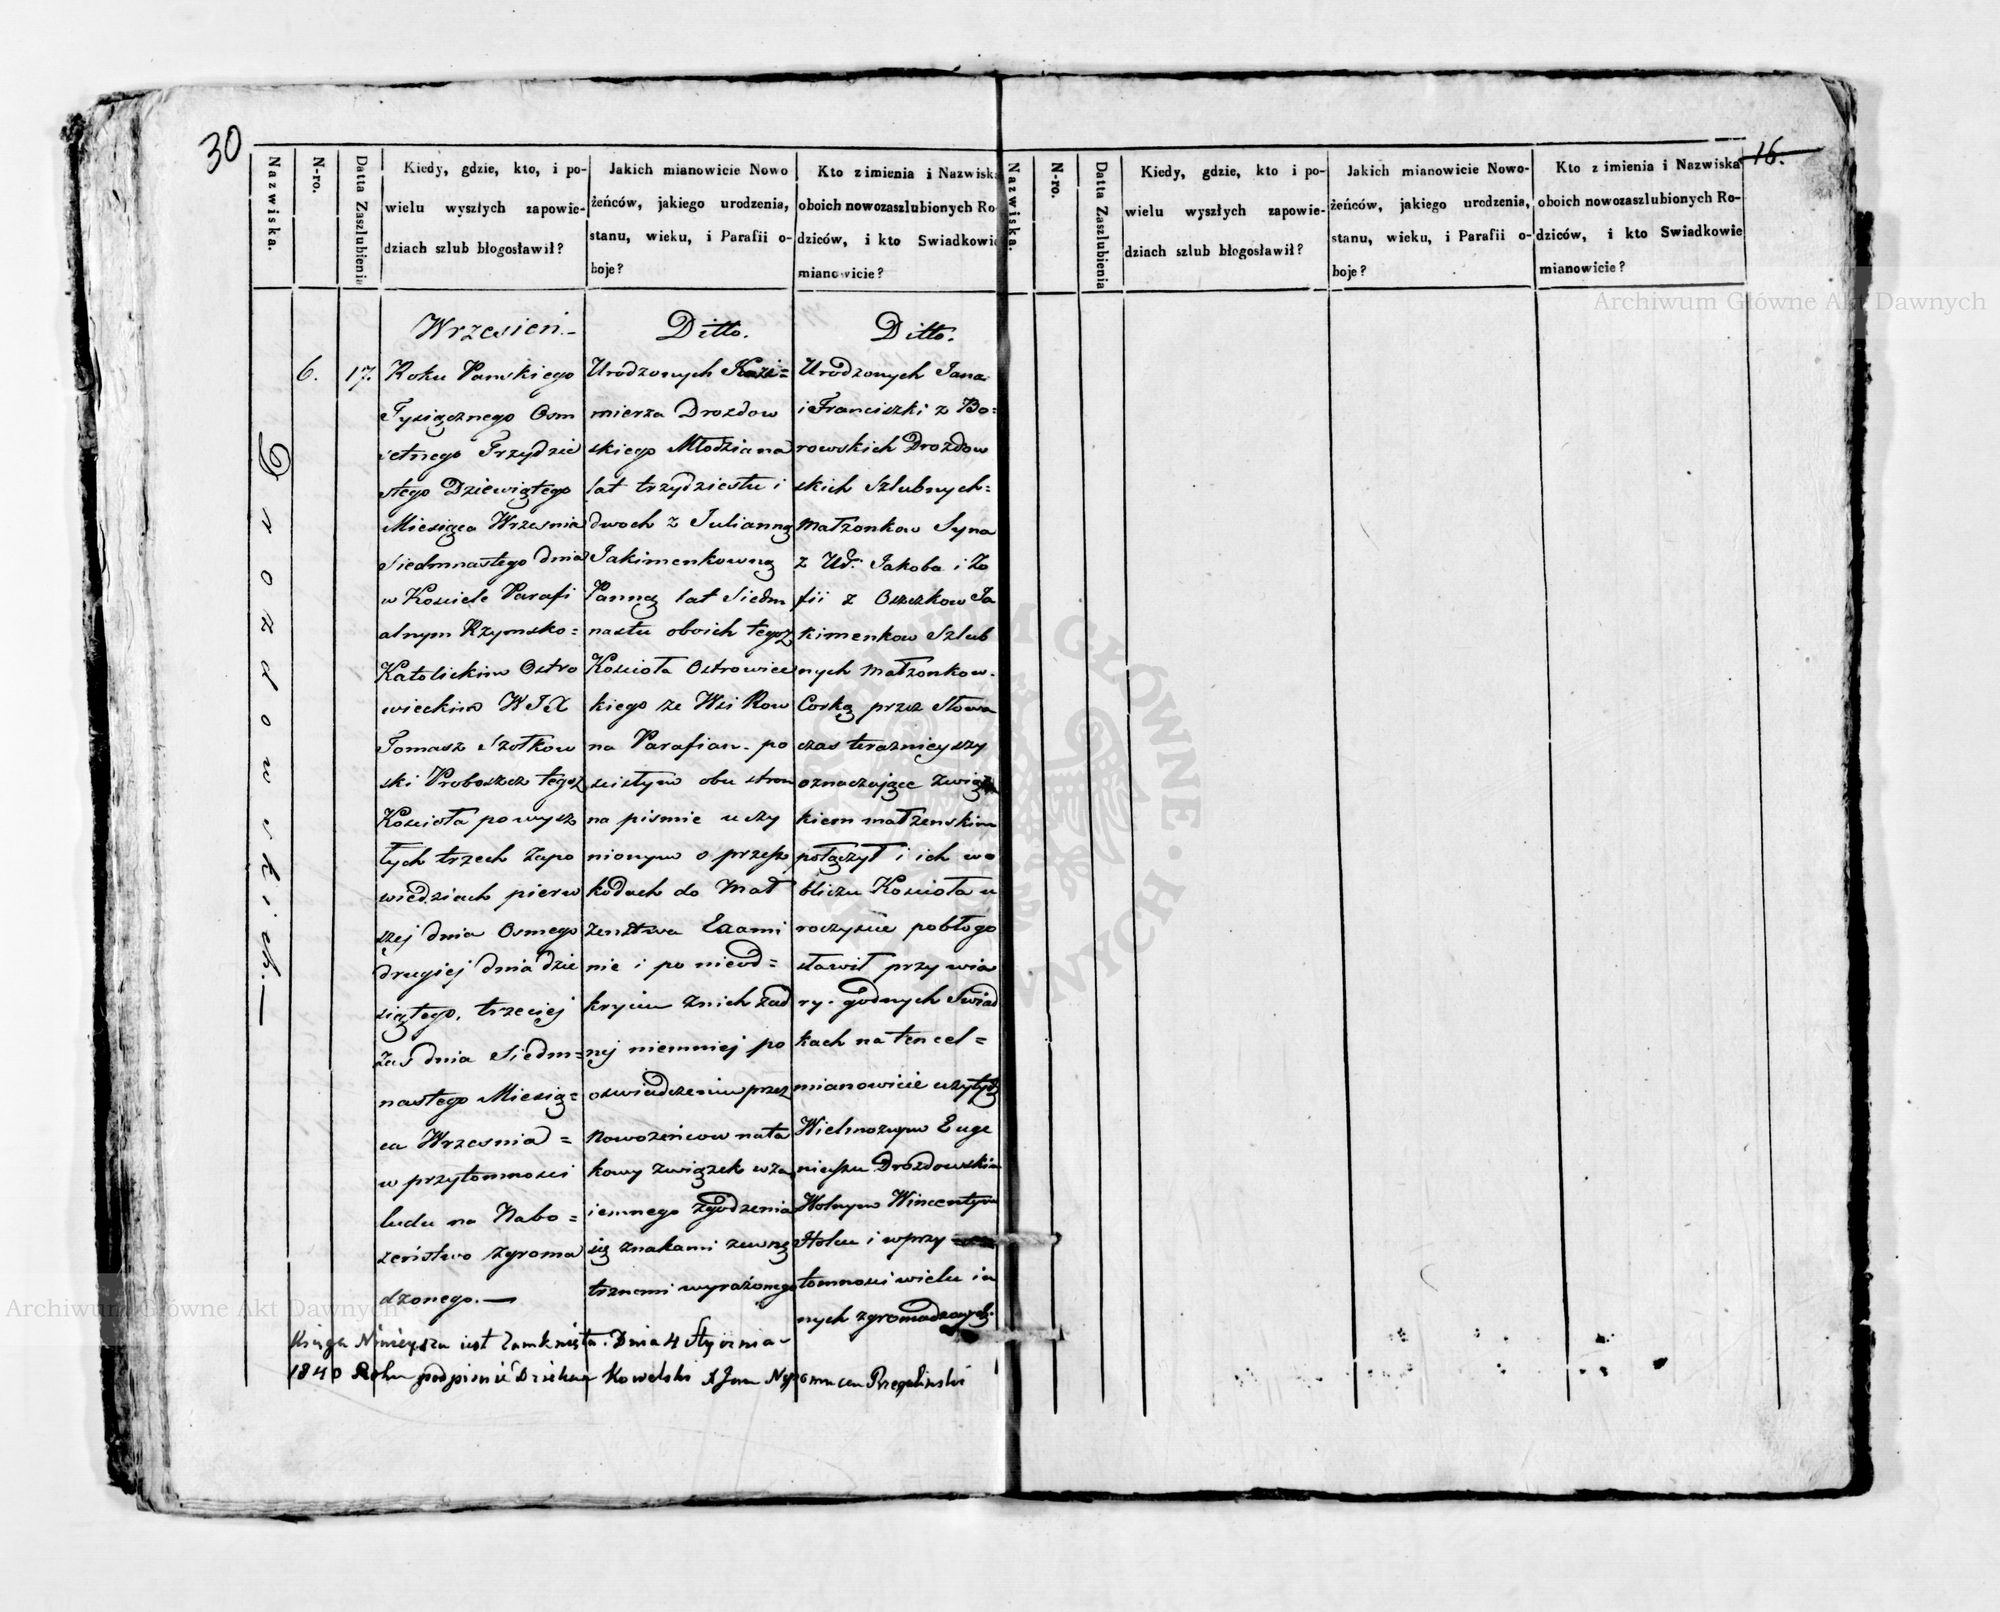 30
Nazwiska.
N-ro.
Datta Zaszlubienia
Kiedy, gdzie, kto, i po-
wielu wyszłych zapowie-
dziach szlub błogosławił?
Jakich mianowicie Nowo
żeńców, jakiego urodzenia,
stanu, wieku, i Parafii o-
boje?
Kto z imienia i Nazwiska
oboich nowozaszlubionych Ro-
dziców, i kto Swiadkowie
mianowicie?
Drozdowskich.—
6.
17.
Wrzesień.-
Roku Pańskiego
Tysiącznego Osm
setnego Trzydzie
stego Dziewiątego
Miesiąca Wrzesnia
Siedmnastego dnia
w Kosciele Parafi
alnym Rzymsko=
Katolickim Ostro
wieckim WJX
Tomasz Szotkow
ski Proboszcz tegoż
Kościoła po wysz
łych trzech Zapo
wiedziach pierw
szej dnia Osmego
drugiej dnia dzie
siątego, trzeciej
zaś dnia Siedm=
nastego Miesią=
ca Wrzesnia =
w przytomnosci
ludu na Nabo=
żeństwo zgroma
dzonego.—
Ditto.
Urodzonych Kazi=
mierza Drozdow
skiego Młodziana
lat trzydziestu i
dwoch z Julianną
Jakimenkowną
Panną lat Siedm
nastu oboich tegoż
Kosciola Ostrowiec
kiego ze Wsi Row
na Parafian. po
scisłym obu stron
na pismie uczy
nionym o przesz
kodach do Mał
żenstwa Exami
nie i po nieod=
kryciu z nich żad
nej niemniej po
oswiadczeniu przez
Nowożeńcow na ta
kowy związek wza
iemnego zgodzenia
się znakami zewnę
trznemi wyrażonego
Ditto.
Urodzonych Jana
i Franciszki z Bo=
rowskich Drozdow
skich Szlubnych=
Małżonkow Syna
z Ud: Jakoba i Zo
fii z Oszczkow Ja
kimenkow Szlub
nych Małżonkow.
Corką przez słowa
czas terazniejszy
oznaczające związ
kiem małżenskim
połączył i ich wo
bliczu Kościoła u
roczyscie pobłogo
sławił przy wia
ry. godnych Swiad
kach na ten cel=
mianowicie użytych
Wielmożnym Euge
niuszu Drozdowskim
Wolnym Wincentym
Holcu i w przy
tomnosci wielu in
nych zgromadzonych.
Księga Ninieysza iest Zamknięta. Dnia 4 Stycznia
1840 Roku podpisuie Dziekan Kowelski X Jan Nepomucen Przegaliński
16.
Nazwiska.
N-ro.
Datta Zaszlubienia
Kiedy, gdzie, kto i po-
wielu wyszłych zapowie-
dziach szlub błogosławił?
Jakich mianowicie Nowo-
żeńców, jakiego urodzenia,
stanu, wieku, i Parafii o-
boje?
Kto z imienia i Nazwiska
oboich nowozaszlubionych Ro-
dziców, i kto Swiadkowie
mianowicie?
Archiwum Główne Akt Dawnych
Archiwum Główne Akt Dawnych